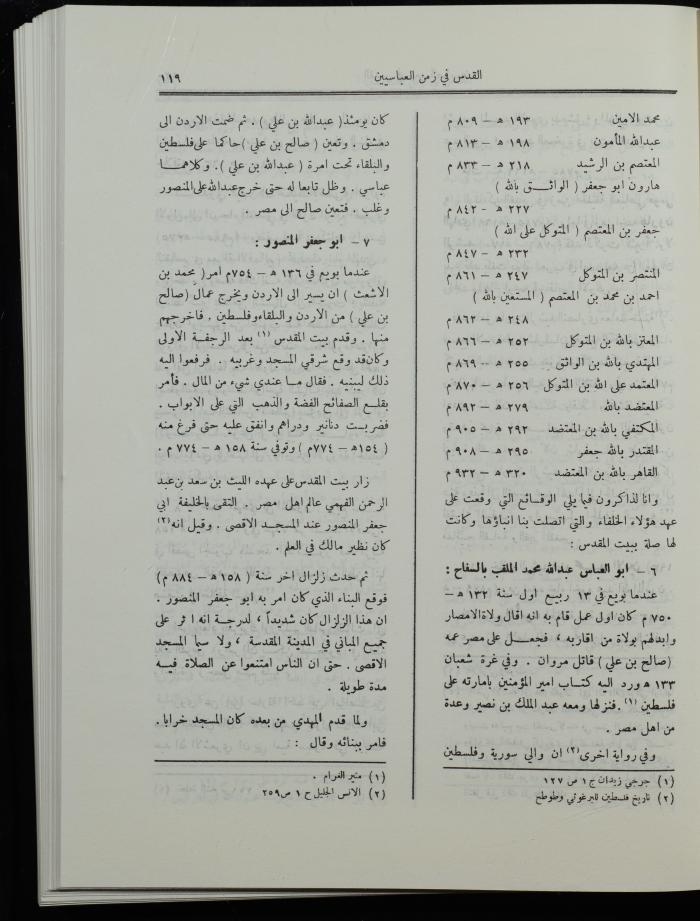 القدس في زمن العباسيين
١١٩
محمد الامين ١٩٣ ه – ٨٠٩ م
عبدالله المأمون ١٩٨ ه – ٨١٣ م
المعتصم بن الرشيد ٢١٨ ه – ٨٣٣ م
هارون ابو جعفر ( الواثق بالله )
٢٢٧ ه - ٨٤٢ م
جعفر بن المعتصم ( المتوكل على الله )
٢٣٢ ه – ٨٤٧ م
المنتصر بن المتوكل ٢٤٧ ه – ٨٦١ م
احمد بن محمد بن المعتصم ( المستعين بالله )
٢٤٨ ه – ٨٦٢ م
المعتز بالله بن المتوكل ٢٥٢ ه – ٨٦٦ م
المهتدي بالله بن الواثق ٢٥٥ ه – ٨٦٩ م
المعتمد على الله بن المتوكل ٢٥٦ ه – ٨٧٠ م
المعتضد بالله ٢٧٩ ه – ٨٩٢ م
المكتفي بالله بن المعتضد ٢٩٢ ه – ٩٠٥ م
المقتدر بالله جعفر ٢٩٥ ه – ٩٠٨ م
القاهر بالله بن المعتضد ٣٢٠ ه – ٩٣٢ م
وانا لذاكرون فيما يلي الوقائع التي وقعت على
عهد هؤلاء الخلفاء والتي اتصلت بنا انباؤها وكانت
لها صلة ببيت المقدس :
٦ – ابو العباس عبدالله محمد الملقب بالسفاح :
عندما بويع في ١٣ ربيع اول سنة ١٣٢ ه –
٧٥٠ م كان اول عمل قام به انه اقال ولاة الامصار
وابدلهم بولاة من اقاربه ، فجعل على مصر عمه
(صالح بن علي) قاتل مروان . وفي غرة شعبان
١٣٣ ه ورد اليه كتاب امير المؤمنين بامارته على
فلسطين (١) . فنزلها ومعه عبد الملك بن نصير وعدة
من اهل مصر .
وفي رواية اخرى(٢) ان والي سورية وفلسطين
(١) جرجي زيدان ج ١ ص ١٢٧
(٢) تاريخ فلسطين للبرغوثي وطوطح
كان يومئذ ( عبدالله بن علي ) . ثم ضمت الاردن الى
دمشق . وتعين ( صالح بن علي ) حاكما على فلسطين
والبلقاء تحت امرة ( عبدالله بن علي ) . وكلاهما
عباسي . وظل تابعا له حتى خرج عبدالله على المنصور
وغلب . فتعين صالح الى مصر .
٧ – ابو جعفر المنصور :
عندما بويع في ١٣٦ ه – ٧٥٤ م امر ( محمد بن
الاشعث ) ان يسير الى الاردن ويخرج عمال (صالح
بن علي ) من الاردن والبلقاء وفلسطين . فاخرجهم
منها . وقدم بيت المقدس (١) بعد الرجفة الاولى
وكان قد وقع شرقي المسجد وغربيه . فرفعوا اليه
ذلك ليبنيه . فقال ما عندي شيء من المال . فأمر
بقلع الصفائح الفضة والذهب التي على الابواب .
فضربت دنانير ودراهم وانفق عليه حتى فرغ منه
( ١٥٤ ه – ٧٧٤ م ) وتوفي سنة ١٥٨ ه – ٧٧٤ م .
زار بيت المقدس على عهده الليث بن سعد بن عبد
الرحمن الفهمي عالم اهل مصر . التقى بالخليفة ابي
جعفر المنصور عند المسجد الاقصى . وقيل انه (٢)
كان نظير مالك في العلم .
ثم حدث زلزال اخر سنة ( ١٥٨ ه – ٨٨٤ م)
فوقع البناء الذي كان امر به ابو جعفر المنصور .
ان هذا الزلزال كان شديداً ، لدرجة انه اثر على
جميع المباني في المدينة المقدسة ، ولا سيما المسجد
الاقصى . حتى ان الناس امتنعوا عن الصلاة فيه
مدة طويلة .
ولما قدم المهدي من بعده كان المسجد خرابا .
فامر ببنائه وقال :
(١) مثير الغرام .
(٢) الانس الجليل ح ١ ص ٢٥٩